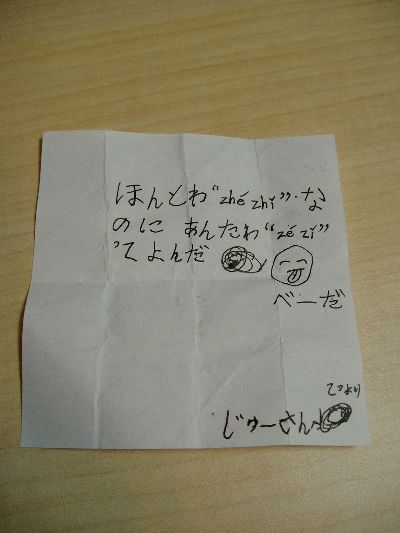 ほんとわ“zhé zhǐ”な
のに あんたわ“zé zǐ”
てよんだ
べーだ
てつより
じゅーさんへ